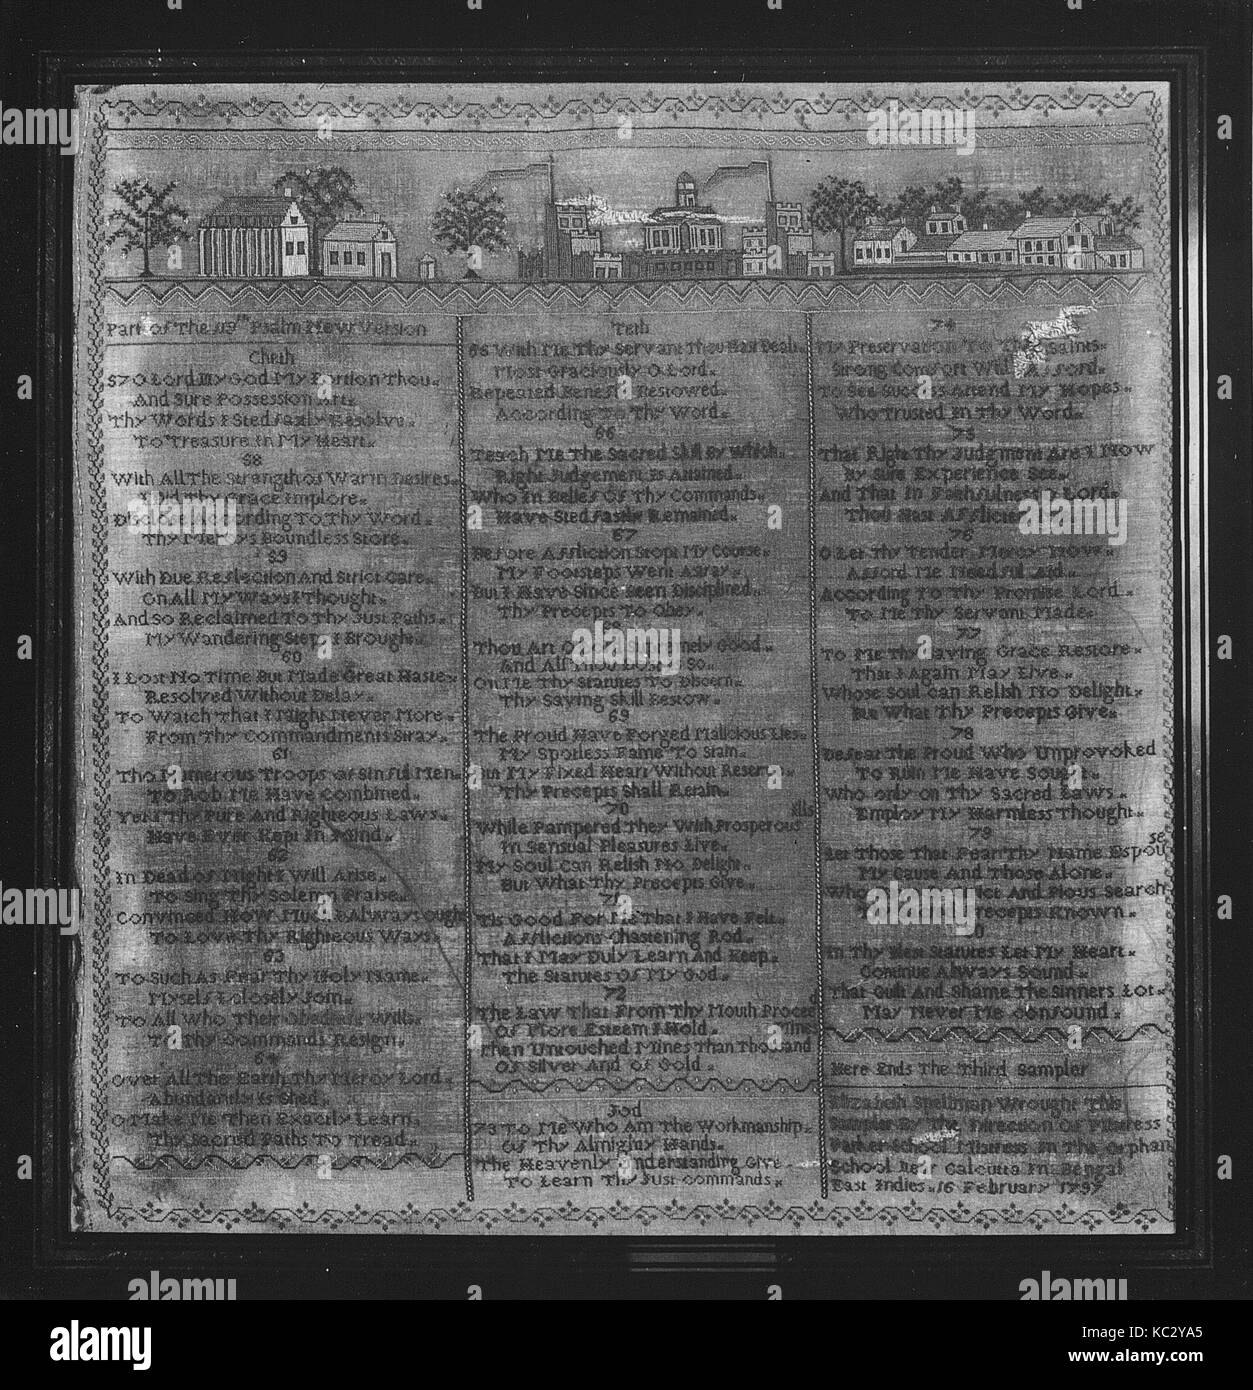 Part of The 119th Psalm New Version
Cheth
57 O Lord My God My Portion Thou
And Sure Possession Art
Thy Words I Stedfastly Resolve
To Treasure In My Heart
58
With All The Strength of Warm Desires
I Did Thy Grace Implore
Disclose According To Thy Word
Thy Mercys Boundless Store
59
With Due Reflection And Strict Care
On All My Ways I Thought
And so Reclaimed To Thy Just Paths
My Wandering Steps I Brought
60
I Lost No Time But Made Great Haste
Resolved Without Delay
To Watch That I Might Never More
From Thy Commandments Stray
61
Tho Numerous Troops of Sinful Men
To Rob Me Have Combined
Yet I Thy Pure And Righteous Laws
Have Ever Kept In Mind
62
In Dead of Night I Will Arise
To Sing Thy Solemn Praise
Convinced How Much I Always ought
To Love Thy Righteous Ways
63
To Such As Fear Thy Holy Name
Myself I closely Join
To All Who Their Obedient Wills
To Thy Commands Resign
64
Over All The Earth Thy Mercy Lord
Abundantly Is Shed
O Make Me Then Exactly Learn
Thy Sacred Paths To Tread
Teth
65 With Me Thy Servant Thou Hast Dealt
Most Graciously O Lord
Repeated Benefits Bestowed
According To Thy Word
66
Teach Me The Sacred Skill By Which
Right Judgement Is Attained
Who In Belief Of Thy Commands
Have Stedfastly Remained
67
Before Affliction Stopt My Course
My Footsteps Went Astray
But I Have Since Been Disciplined
Thy Precepts To Obey
68
Thou Art O Lord Supremely Good
And All Thou Dost Is So
On Me Thy Statutes To Discern
Thy Saving Skill Bestow
69
The Proud Have Forged Malicious Lies
My Spotless Fame To Stain
But My Fixed Heart Without Reserve
Thy Precepts Shall Retain
70
While Pampered They With Prosperous Ills
In Sensual Pleasures Live
My Soul Can Relish No Delight
But What Thy Precepts Give
71
Tis Good For Me That I Have Felt
Afflictions Chastening Rod
That I May Duly Learn And Keep
The Statutes Of My God
72
The Law That From Thy Mouth Proceed
Of More Esteem I Hold
Then Untouched Mines Than Thousand Mines
Of Silver And of Gold
Jod
73 To Me Who Am The Workmanship
Of Thy Almighty Hands
The Heavenly Understanding Give
To Learn Thy Just Commands
74
My Preservation To Thy Saints
Strong Comfort Will Afford
To See Success Attend My Hopes
Who Trusted In Thy Word
75
That Right Thy Judgment Are I Now
By Sure Experience See
And That In Faithfulness O Lord
Thou Hast Afflicted
76
O Let Thy Tender Mercy Now
Afford Me Needful Aid
According To Thy Promise Lord
To Me Thy Servant Made
77
To Me Thy Saving Grace Restore
That I Again May Live
Whose Soul can Relish No Delight
But What Thy Precepts Give
78
Defeat The Proud Who Unprovoked
To Ruin Me Have Sought
Who only on Thy Sacred Laws
Employ My Harmless Thought
79
Let Those That Fear Thy Name Espouse
My Cause And Those Alone
Who And Pious Search
Precepts Known
80
In Thy Blest Statutes Let My Heart
Continue Always Sound
That Guilt And Shame The Sinners Lot
May Never Me Confound
Here Ends The Third Sampler
Elizabeth Spellman Wrought This
Sampler By The Direction Of Mistress
Parker School Mistress In The Orphan
School Near Calcutta In Bengal
East Indies 16 February 1797
alamy
Image ID: KC2YA5
www.alamy.com